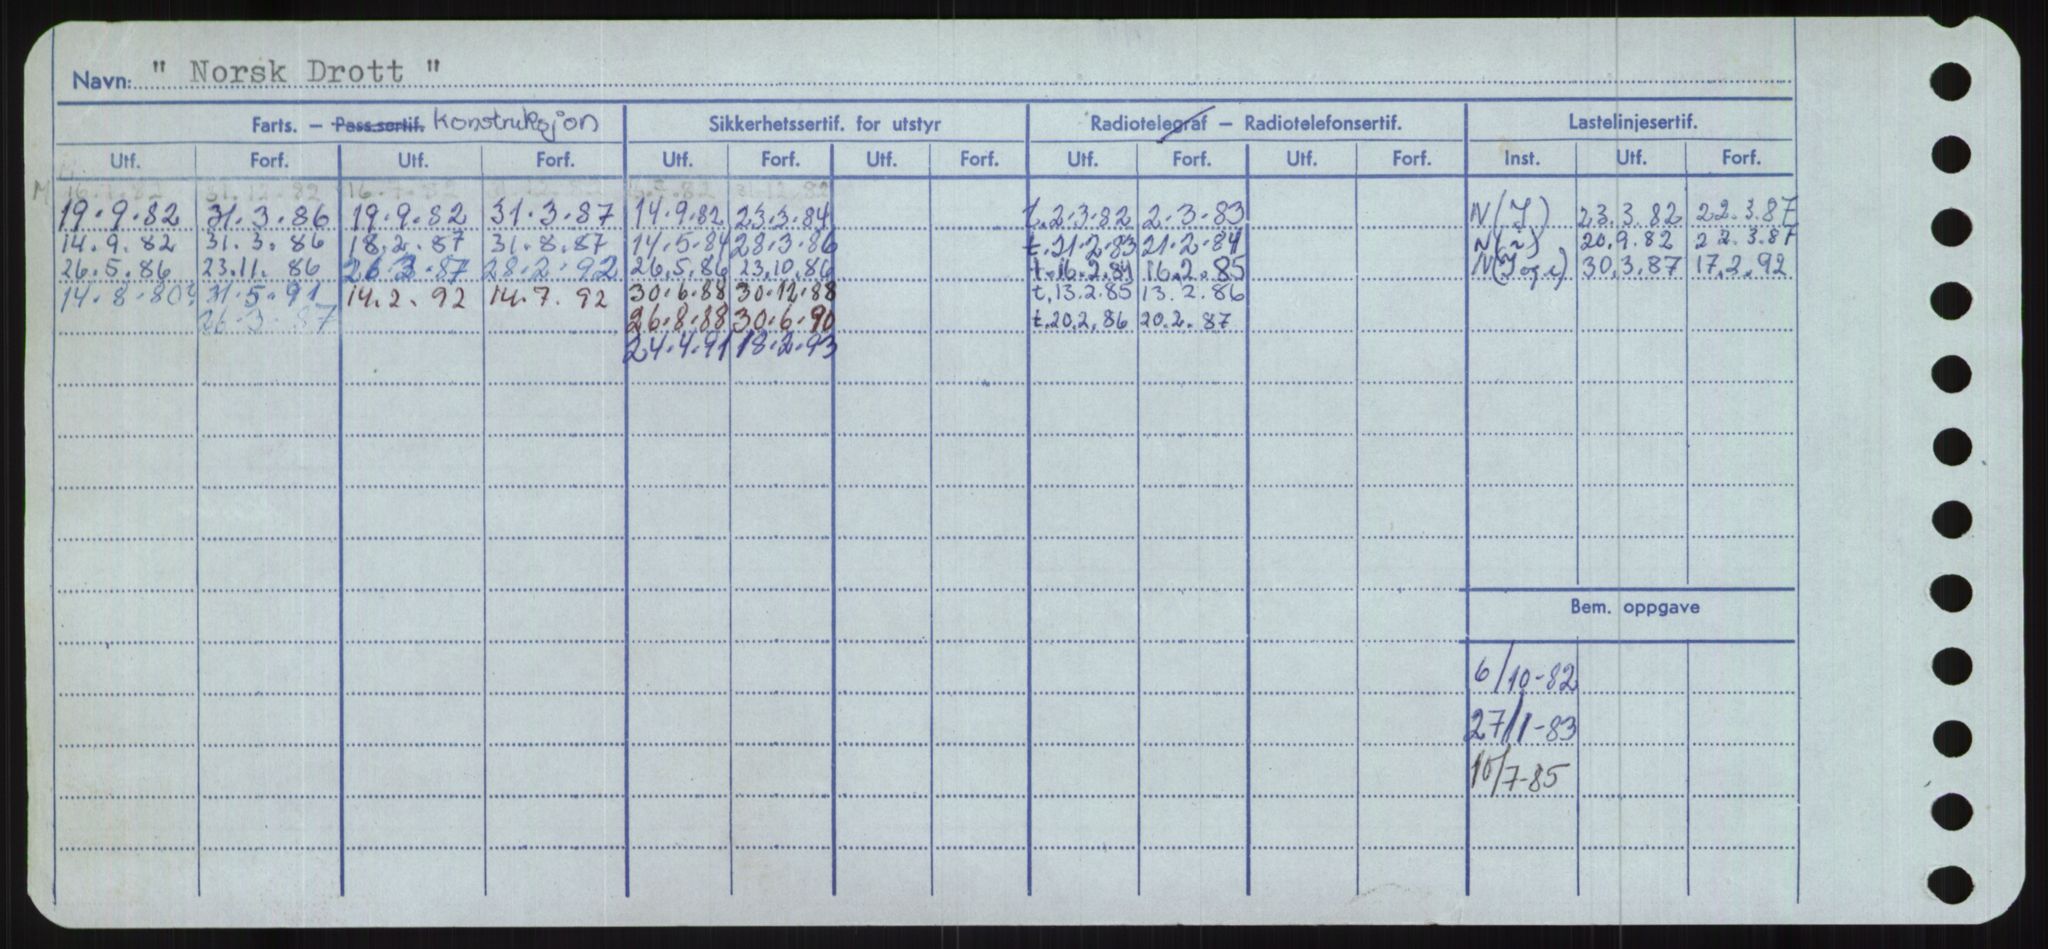 Navn: " Norsk Drott "
Farts. — Pass.sertif. Konstruksjon Sikkerhetssertif. for utstyr Radiotelegraf — Radiotelefonsertif. Lastelinjesertif.
Utf. Forf. Utf. Forf. Utf. Forf. Utf. Forf. Utf. Forf. Utf. Forf. Inst. Utf. Forf.
M 16.7.82 31.12.82 16.7.82 31.12.82
19.9.82 31.3.86 19.9.82 31.3.87 14.9.82 23.3.84 t.2.3.82 2.3.83 N(I) 23.3.82 22.3.87
14.9.82 31.3.86 18.2.87 31.8.87 14.5.84 28.3.86 t.21.2.83 21.2.84 20.9.82 22.3.87
26.5.86 23.11.86 26.3.87 28.2.92 26.5.86 23.10.86 t.16.2.84 16.2.85 30.3.87 17.2.92
31.5.91 14.2.92 14.7.92 30.6.88 30.12.88 t.13.2.85 13.2.86
26.3.87 26.8.88 30.6.90 t.20.2.86 20.2.87
24.4.91 18.2.93
Bem. oppgave
6/10-82
27/1-83
10/7-85